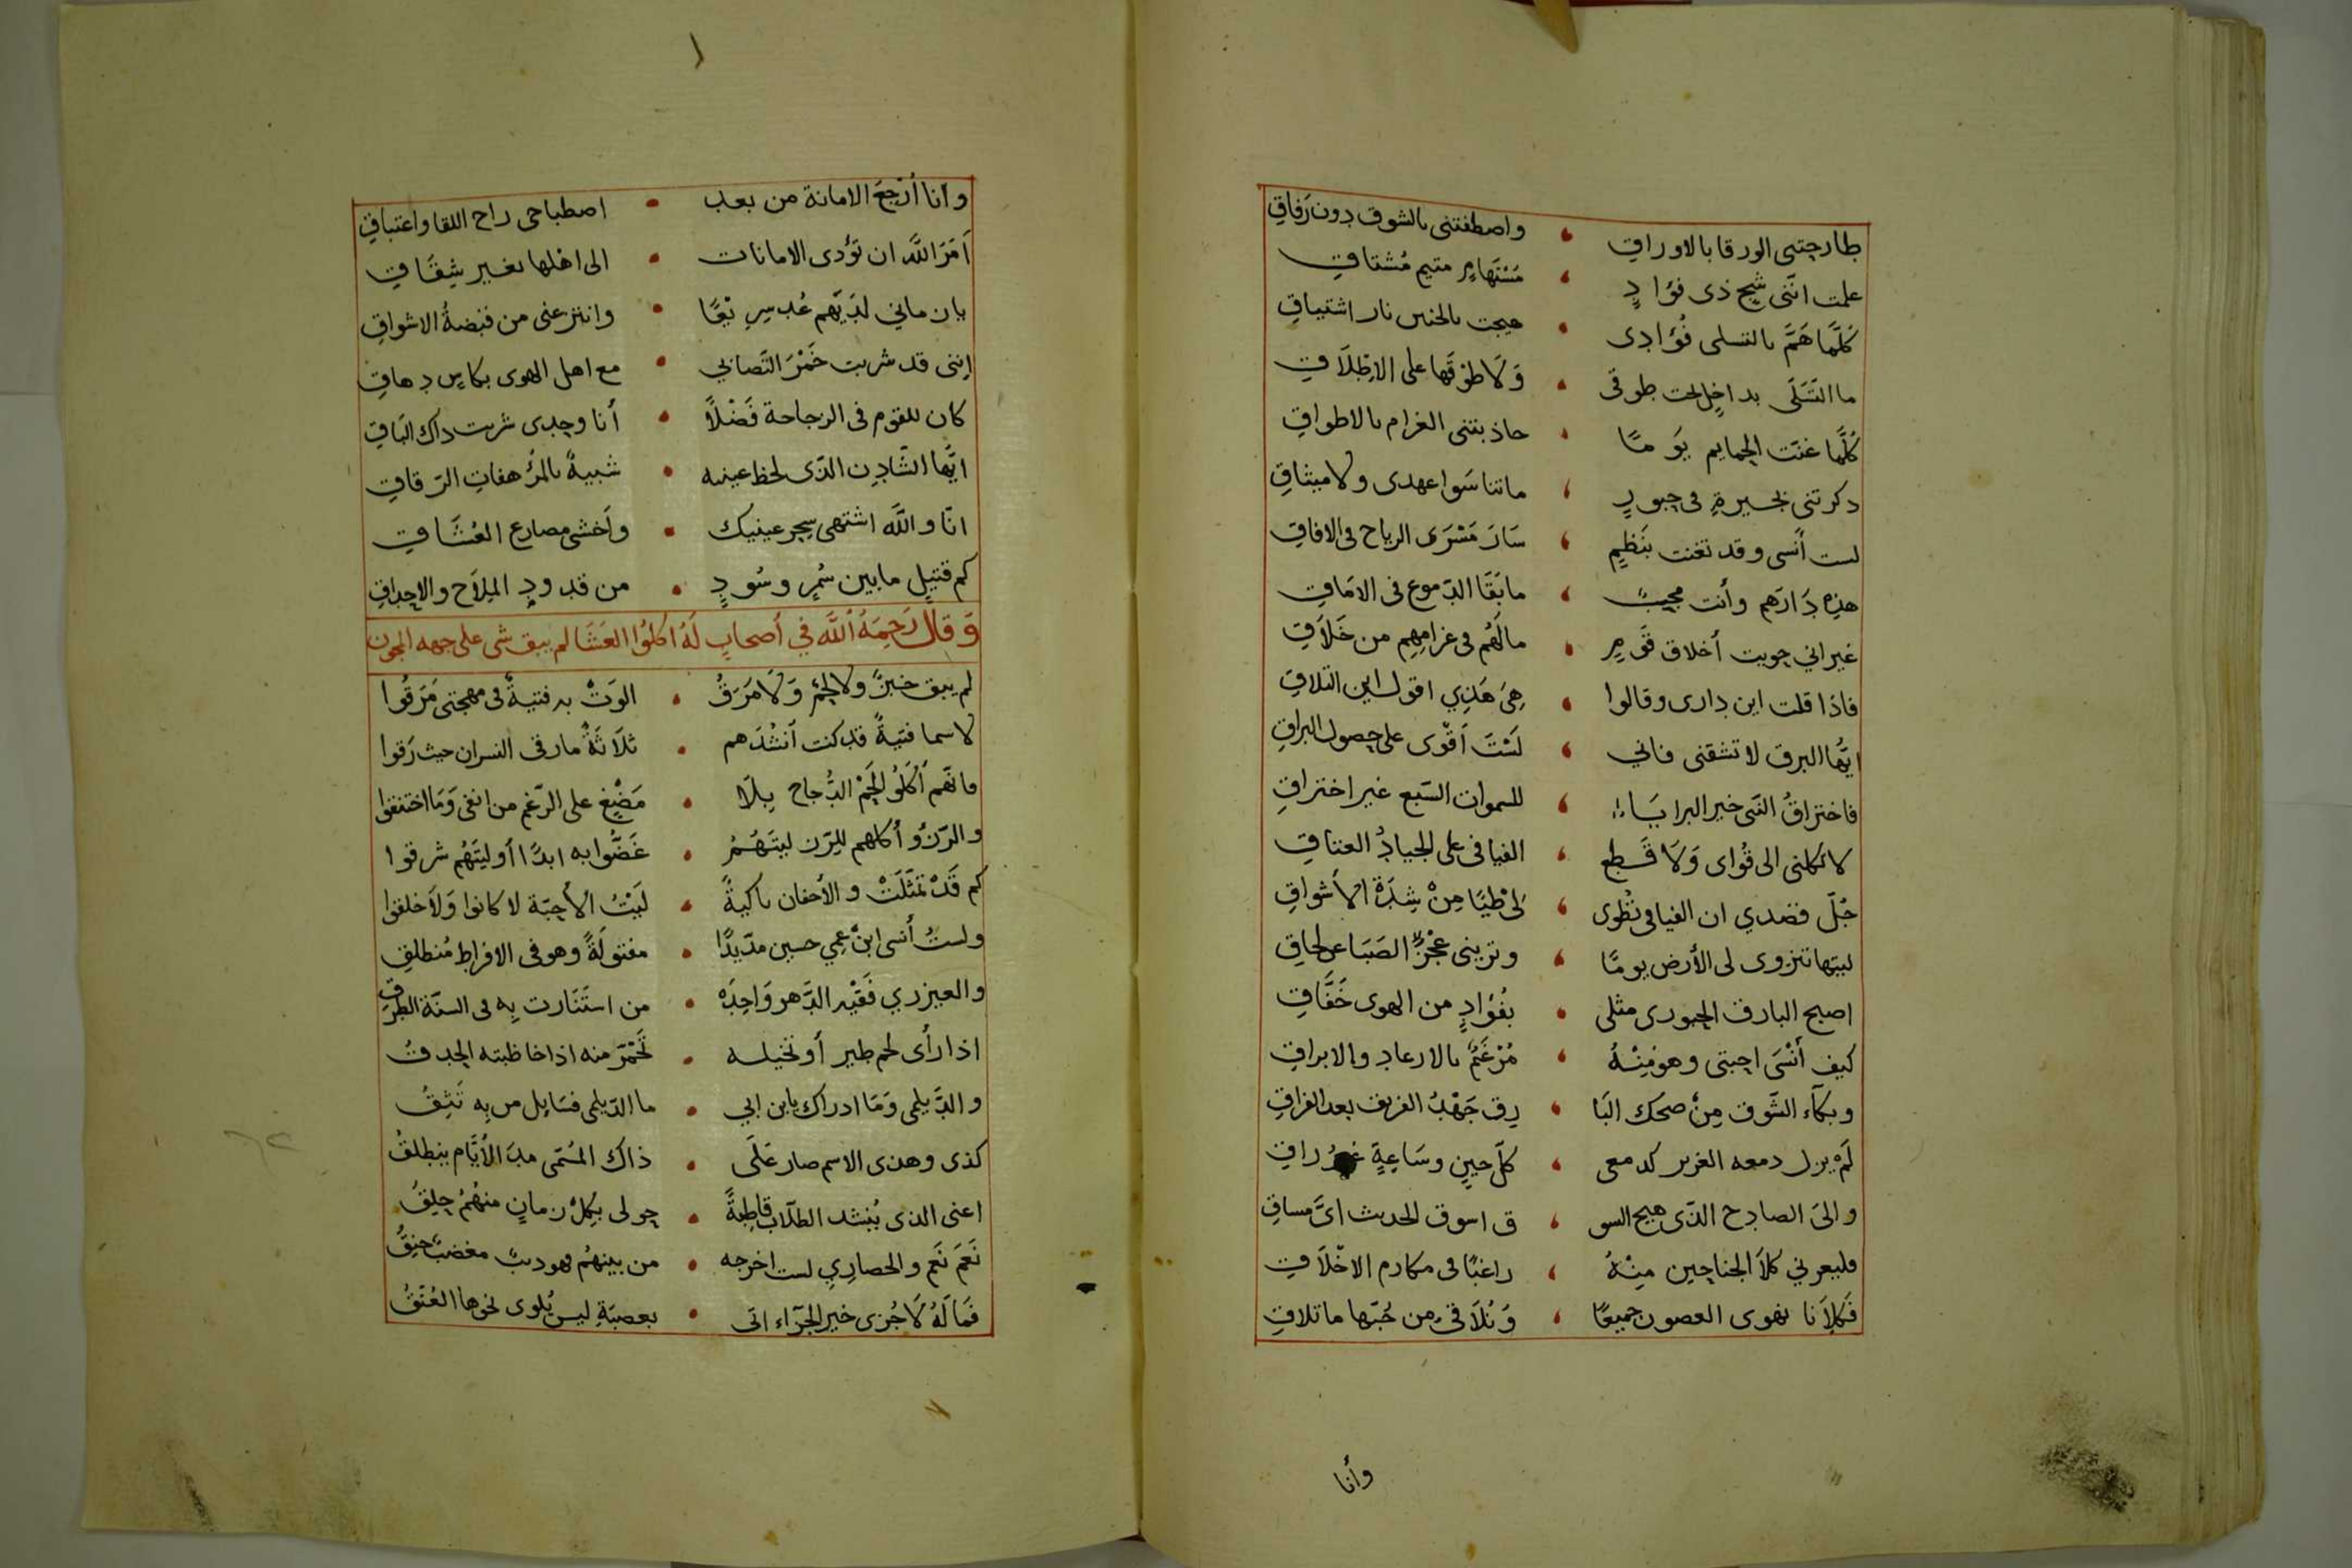 طارحتني الورقا بالاوراق واصطفتني بالشوق دون رَفاقِ
علمت انّني شيّح ذى فؤادٍ مُسْتَهَامٍ متيم مُشتاقِ
كُلَّما هَمَّ بالتسلى فُؤادى هيجت بالحنين نار اشتياقِ
ما التَسَلّى بداخل تحت طوقى وَلَا طوقها على الاِطْلَاقِ
كُلَّما غنّت الحمايم يَومًا جاذبتنى الغرام بالاطواقِ
ذكرتنى بجيرةٍ فى حبورٍ ما تناسَوا عهدى ولا ميثاقِ
لست أنسى وقد تغنت بنَظيمٍ سَارَ مَسْرَى الرياح فى الافاقِ
هذه دَارهم وأنت محبٌ ما بَقَا الدّموع فى الامَاقِ
غير اني حويت أخلاق قَومٍ مالَهُم فى غرامِهِم من خَلَاقِ
فاذا قلت اين دارى وقالوا هِىَ هَذِي اقول اين التلاقِ
ايُّها البرق لا تشقنى فاني لَسْتَ أقْوى على حصول البراقِ
فاختراقُ النّبى خير البرايَا للسموات السّبع غير اختراقِ
لا تكلنى الى قُواى وَلَا قَطع الفيافى على الجيادُ العتاقِ
جُلّ قصدي ان الفيافى تُطْوى لى طيًا مِنْ شِدّةْ الأشواقِ
ليتها تنزوى لى الأرض يومًا وترينى عجْزَ الصَبَا عن لحاقِ
اصبح البارق الحبورى مثلى بفُؤادٍ من الهوى خَفَّاقِ
كيف أَنْسَى احبتى وهو مِنْهُ مُرْغَمٌ بالارعاد والابراقِ
وبكآء الشّوق مِنْ ضحك البَا رِق جَهْدُ الغريق بعد الفراقِ
لَمْ يزل دمعه الغزير كدمعى كلّ حينٍ وسَاعةٍ راقِ
والىَ الصادح الذّى هيج الشو ق اسوق الحديث اىَّ مساقِ
فليعرني كلاَ الجناحين مِنْهُ راغبًا فى مكارم الاخْلَاقِ
فَكِلَانا نهوى الغصون جميعًا وَنُلَاقى من حُبّها ما تلاقِ
وأنا
وانا أُرْجعَ الامانة من بعد اصطباحى راح اللقا واغتباقِ
اَمَرَ اللَّه ان تؤدى الامانات الى اهلها بغير شِقَاقِ
بان مانى لدَيّهم عُد سرِيْعًا وانتزعنى من قبضةُ الاشواقِ
اِننى قد شربت خَمْرَ التَصَابي مع اهل الهوى بكاسٍ دهاقِ
كان للقوم فى الزجاجة فَضْلًا أنا وحدى شربت ذاك البَاقِ
ايُّها الشّادِن الذّى لحظ عينيه شبيهٌ بالمُرْهفاتِ الرّقاقِ
انّا واللَّه اشتهى سِحر عينيك وأخشى مصارع العُشَّاقِ
كم قتيلٍ ما بين سُمْرٍ وسُودٍ من قدودِ المِلَاح والاحداقِ
وَقَالَ رَحِمَهُ اللَّه في أَصحابٍ لَهُ اكلُوا العَشَا لم يبق شى على جهه المجون
لم يبق خبزٌ ولا لحْمٌ وَلَا مَرَقُ الوَتْ به فتيةٌ فى مهجتى مَرَقُوا
لا سما فتيةٌ قد كنت أنشُدهم ثَلَاثَةٌ مارقى النسران حيث رَقوا
ما نَهَم أكَلُو لَحْمْ الدُجاج بِلَا مَضْغٍ على الرّغم من انفى وَمَا اختنقوا
والرّزُ أكلهم للرّز ليتَهُمُ غَصُّوا به ابدًا أو ليتَهُم شرقوا
كم قَدْ تَمثَّلَتْ والأجفان باكيةً لَيْتُ الأحبّة لا كانوا وَلَا خلقوا
ولستُ أنسى ابنْ عمِي حسين مدّيدًا مفتولةً وهو فى الافراط مُنطلقِ
والعيزري فَقيْه الدَّهر وَاحِدَه من استَنَارت بِه فى السنّة الطرقِ
اذا رأى لحم طير أو تخيله تَحْمَرّ منه اذا خاطبته الحدقُ
والدّيلمى وَمَا ادراك يا بن ابي ما الدّيلمى فسَايل من بِه تَثِقُ
كذى وهذى الاسم صار عَلَى ذاك المُسَمّى مدَ الأيَّام ينطلقُ
اعنى الذى يُنشد الطلّاب قاطِبةً حولى بكِلْ زمانٍ منهُمُ حِلِقُ
نَعَم نَعَم والحصارِي لست اخرجه من بينهُم فهو دبٌ مغضبٌ حَنِقُ
فمَا لَهُ لَا جُزى خير الجزآء اتى بعصبَةٍ ليس يُلوى نحوها العُنُقُ